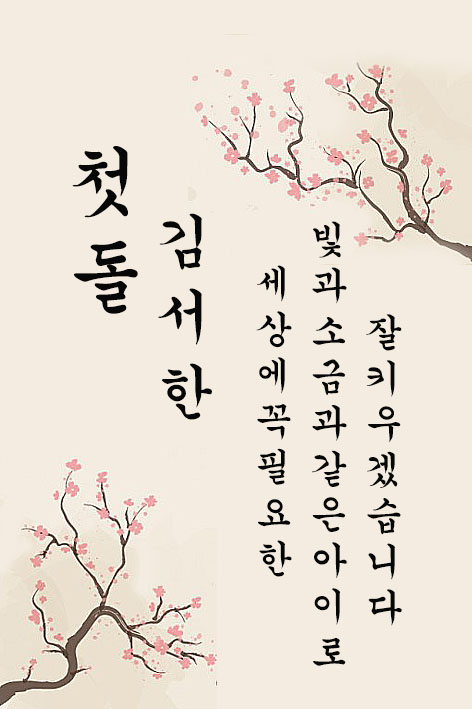 첫돌
김서한
세상에꼭필요한
빛과소금과같은아이로
잘키우겠습니다